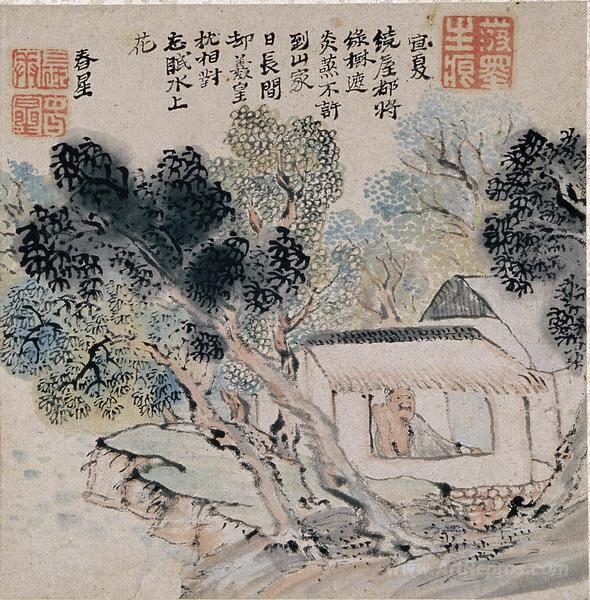 宜夏
繞屋都將
緑樹遮
炎蒸不許
到山家
日長閒
却羲皇
枕相對
忘眠水上
花
春星